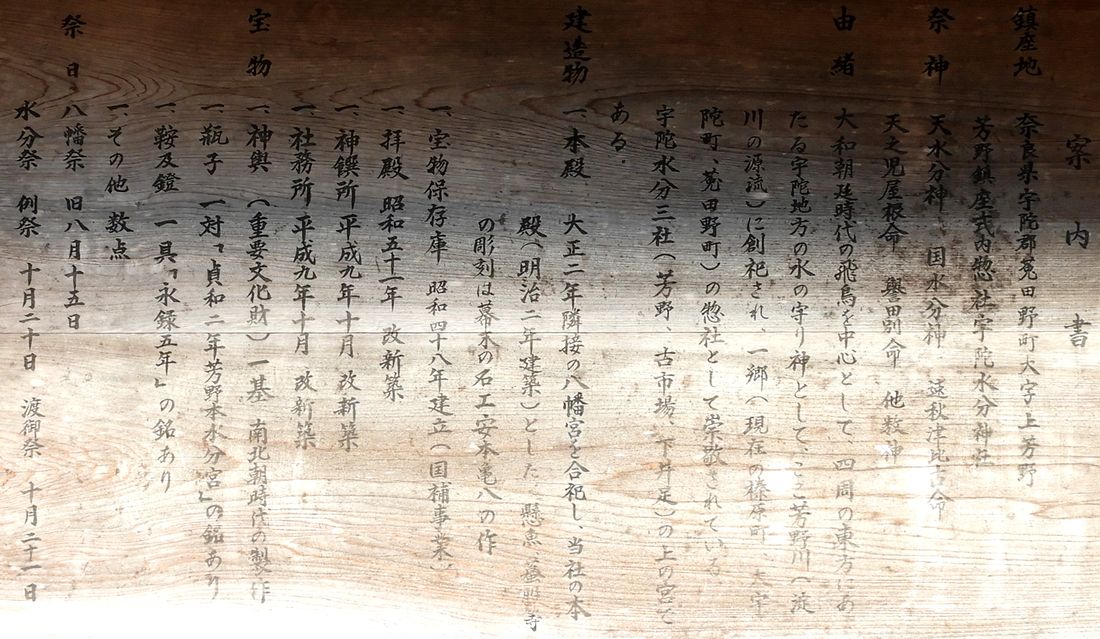 案内書
鎮座地 奈良県宇陀郡菟田野町大字上芳野
芳野鎮座式内惣社宇陀水分神社
祭神 天水分神 国水分神 速秋津比古命
天之児屋根命 誉田別命 他数神
由緒 大和朝廷時代の飛鳥を中心として、四周の東方にあ
たる宇陀地方の水の守り神として、ここ芳野川(淀
川の源流)に創祀され、一郷(現在の榛原町、大宇
陀町、菟田野町)の惣社として崇敬されている
宇陀水分三社(芳野、古市場、下井足)の上の宮で
ある。
建造物 一、本殿 大正二年隣接の八幡宮を合祀し、当社の本
殿(明治二年建築)とした、懸魚、蟇股等
の彫刻は幕末の石工・安本亀八の作
一、宝物保存庫 昭和四十八年建立(国補事業)
一、拝殿 昭和五十一年 改新築
一、神饌所 平成九年十月 改新築
一、社務所 平成九年十月 改新築
宝物 一、神輿 (重要文化財) 一基 南北朝時代の製作
一、瓶子 一対「貞和二年芳野本水分宮」の銘あり
一、鞍及鐙 一具「永録五年」の銘あり
一、その他 数点
祭日 八幡祭 旧八月十五日
水分祭 例祭 十月二十日 渡御祭 十月二十一日